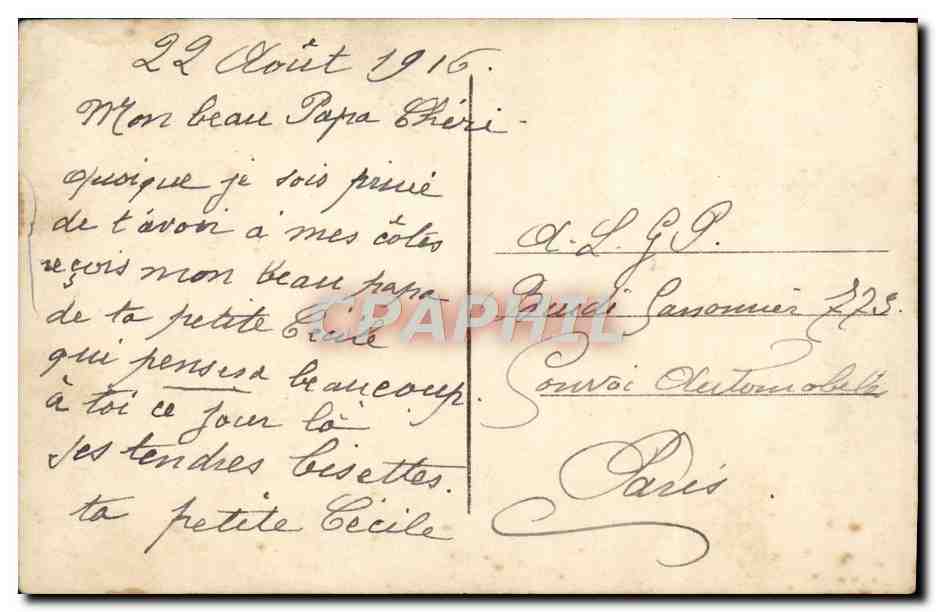 22 Août 1916.
Mon beau Papa Chéri
quoique je sois privé
de t'avoir à mes côtés
reçois mon beau papa
de ta petite Cécile
qui pensera beaucoup
à toi ce jour là
ses tendres bisettes.
ta petite Cécile
A. L. G P.
773.
Convoi Automobile
Paris.
CPAPHIL